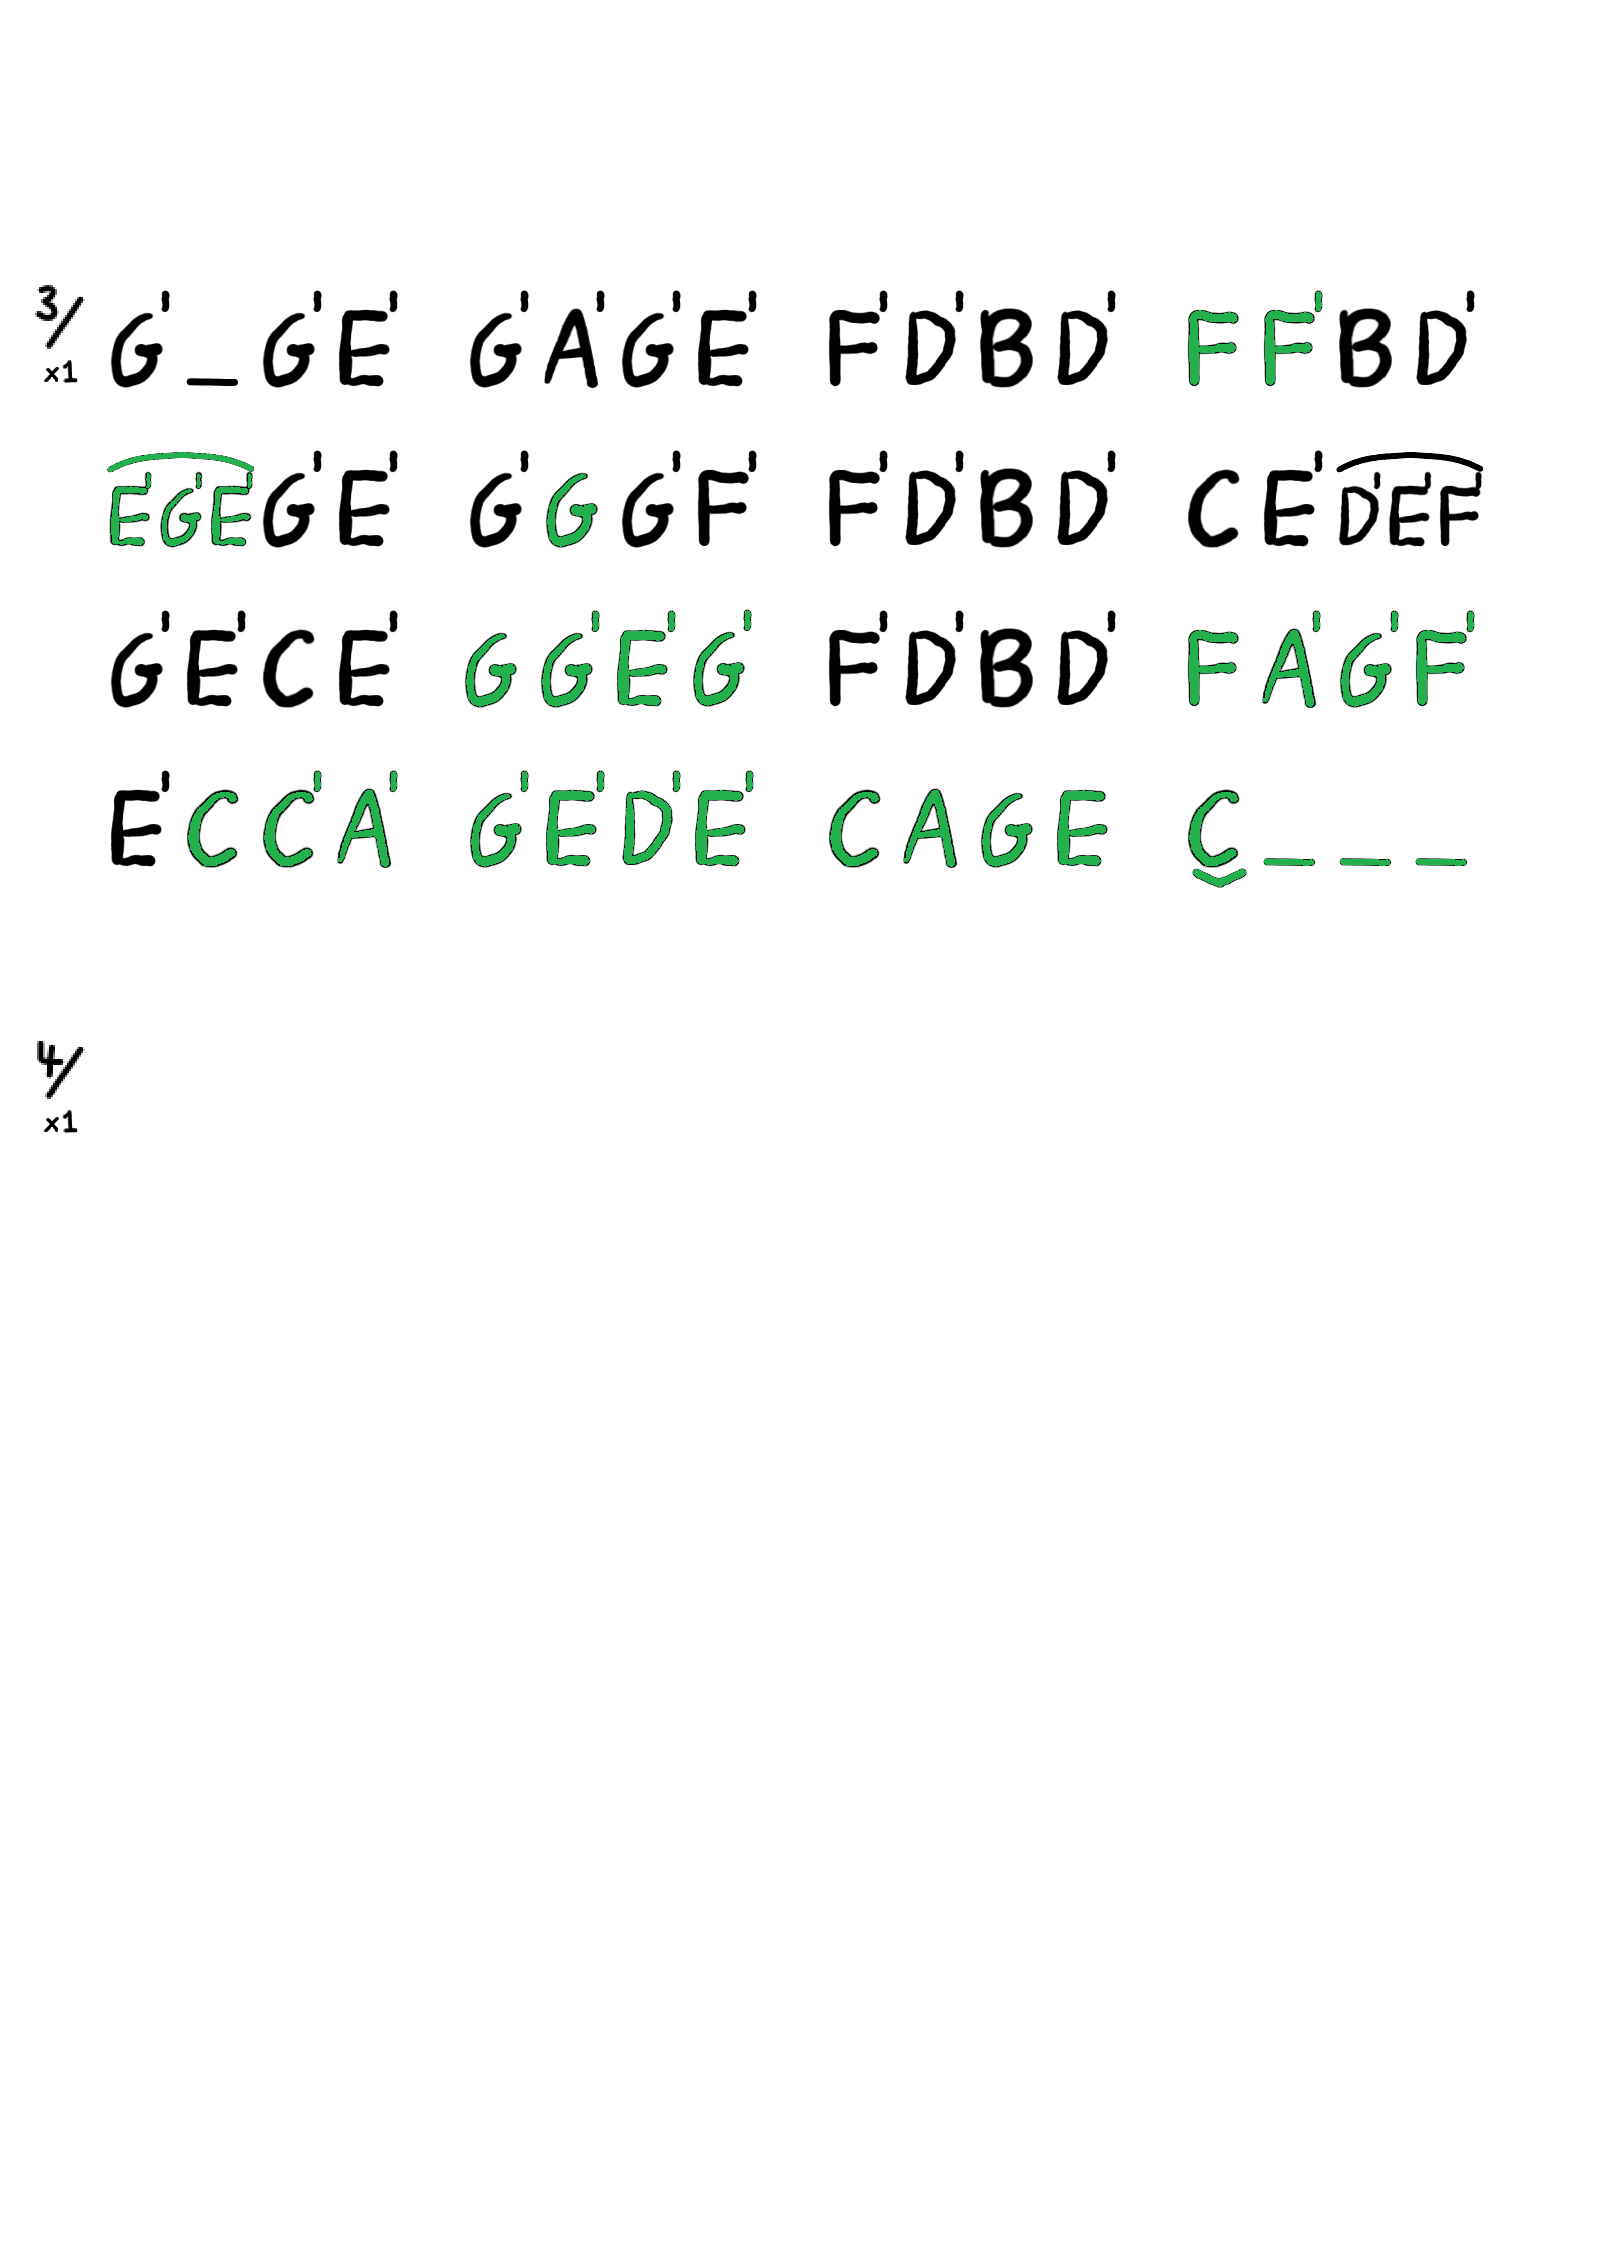 3/ G' _ G' E' G' A' G' E' F' D' B D' F F' B D'
x1
E' G' E' G' E' G' G G' F' F' D' B D' C E' D' E' F'
G' E' C E' G G' E' G' F' D' B D' F A' G' F'
E' C C' A' G' E' D' E' C A G E C _ _ _
4/
x1